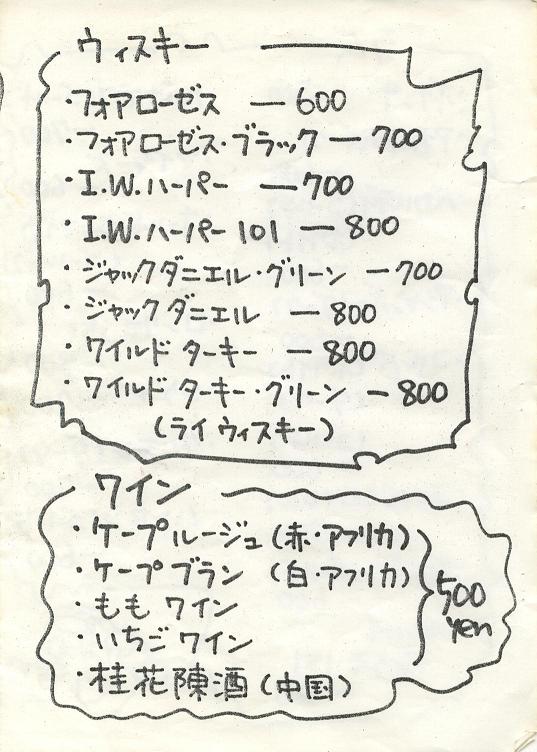 ウィスキー
・フォアローゼス —600
・フォアローゼス・ブラック —700
・I.W.ハーパー —700
・I.W.ハーパー 101 —800
・ジャックダニエル・グリーン —700
・ジャックダニエル —800
・ワイルドターキー —800
・ワイルドターキー・グリーン —800
(ライウィスキー)
ワイン
・ケープルージュ(赤・アフリカ)
・ケープブラン (白・アフリカ)
・ももワイン
500
yen
・いちごワイン
・桂花陳酒(中国)